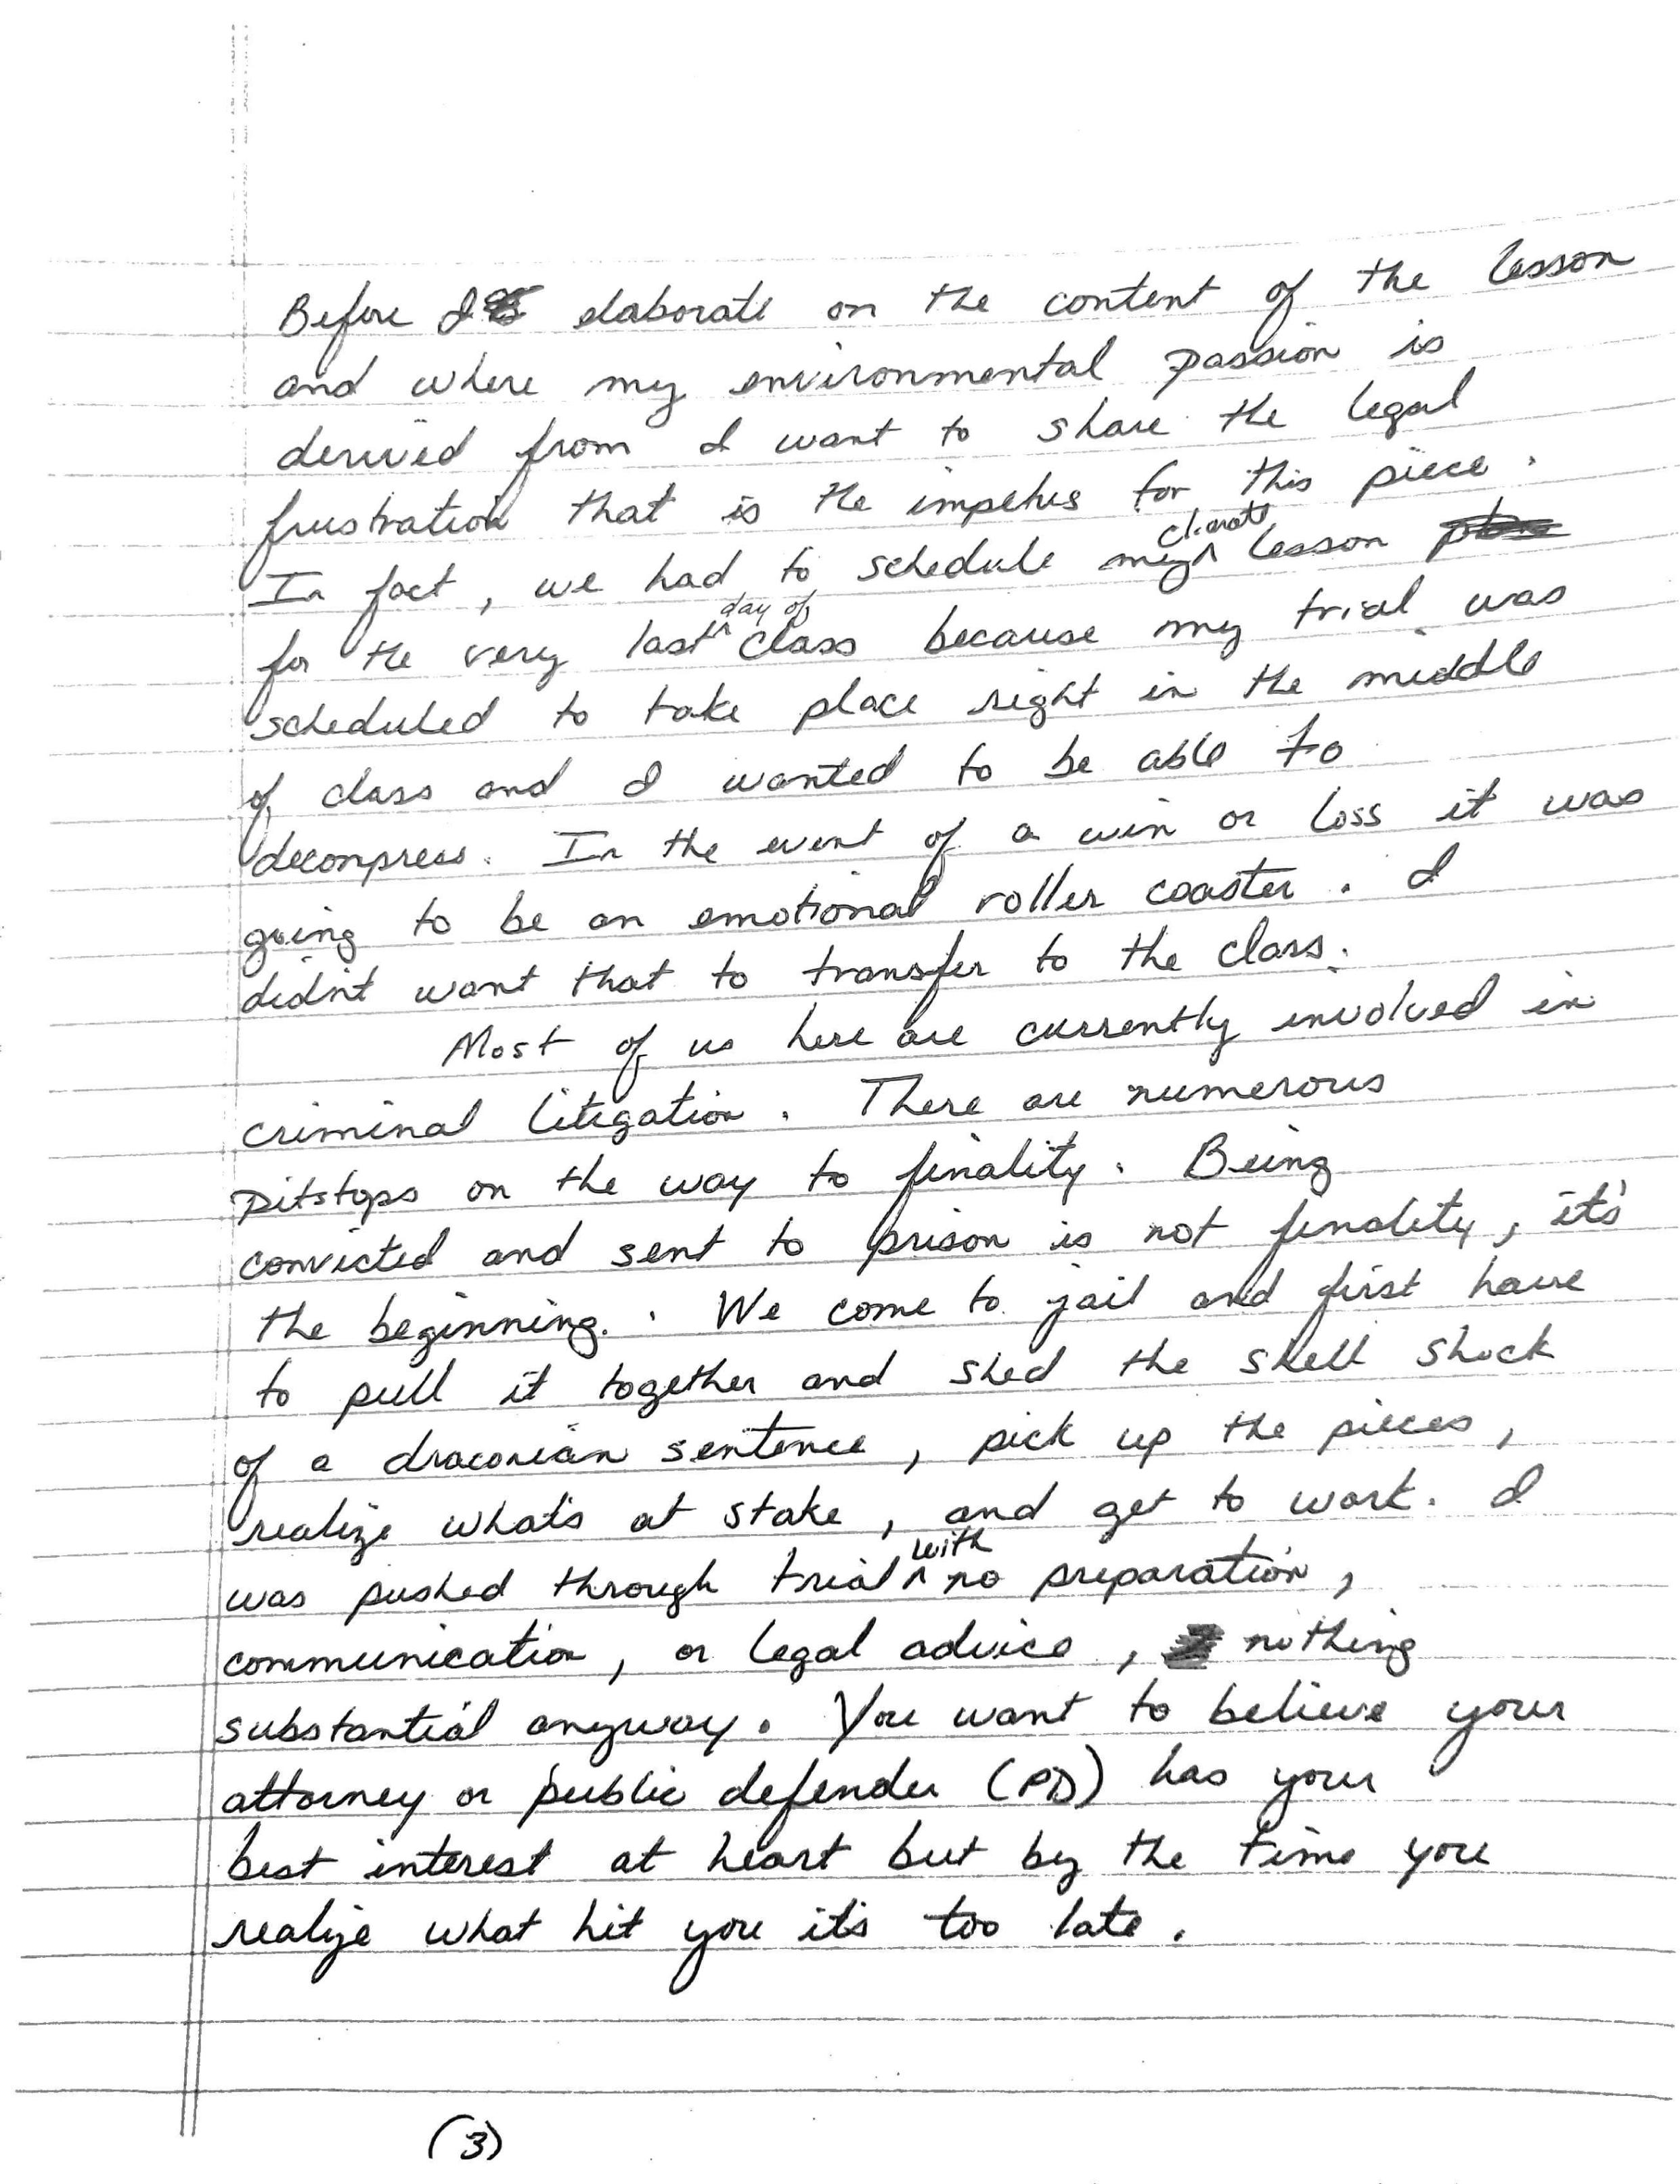 Before I elaborate on the content of the lesson
and where my environmental passion is
derived from I want to share the legal
frustration that is the impetus for this piece.
In fact, we had to schedule my climate lesson
for the very last day of class because my trial was
scheduled to take place right in the middle
of class and I wanted to be able to
decompress. In the event of a win or loss it was
going to be an emotional roller coaster. I
didn't want that to transfer to the class.
Most of us here are currently involved in
criminal litigation. There are numerous
pitstops on the way to finality. Being
convicted and sent to prison is not finality, it's
the beginning. We come to jail and first have
to pull it together and shed the shell shock
of a draconian sentence, pick up the pieces,
realize what's at stake, and get to work. I
was pushed through trial with no preparation,
communication, or legal advice, nothing
substantial anyway. You want to believe your
attorney or public defender (PD) has your
best interest at heart but by the time you
realize what hit you it's too late.
(3)